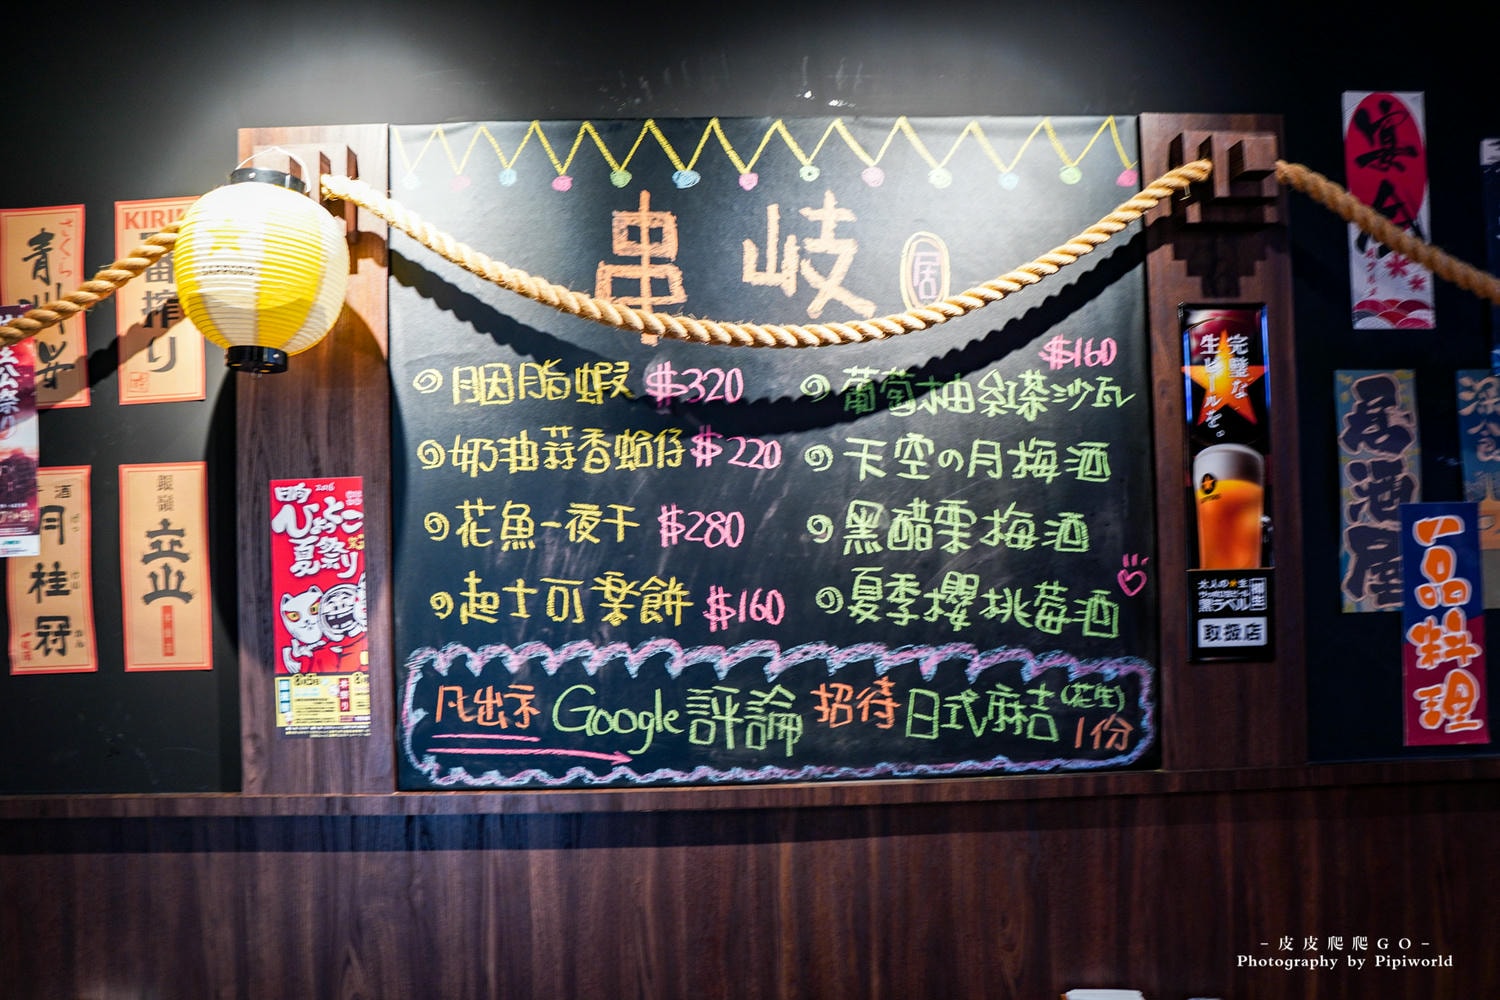 串岐居
胭脂蝦 $320
奶油蒜香蛤仔 $220
花魚一夜干 $280
起士可樂餅 $160
$160
葡萄柚紅茶沙瓦
天空の月梅酒
黑醋栗梅酒
夏季櫻桃莓酒
凡出示 Google 評論 招待 日式麻吉(花生) 1份
さくら
KIRIN
一番搾り
SAPPORO
月桂冠
銀嶺
立山
2016
ひょっとこ
夏祭り
完璧な
生ビールを。
黒ラベル
取扱店
宴会
居酒屋
一品料理
-皮皮爬爬GO-
Photography by Pipiworld